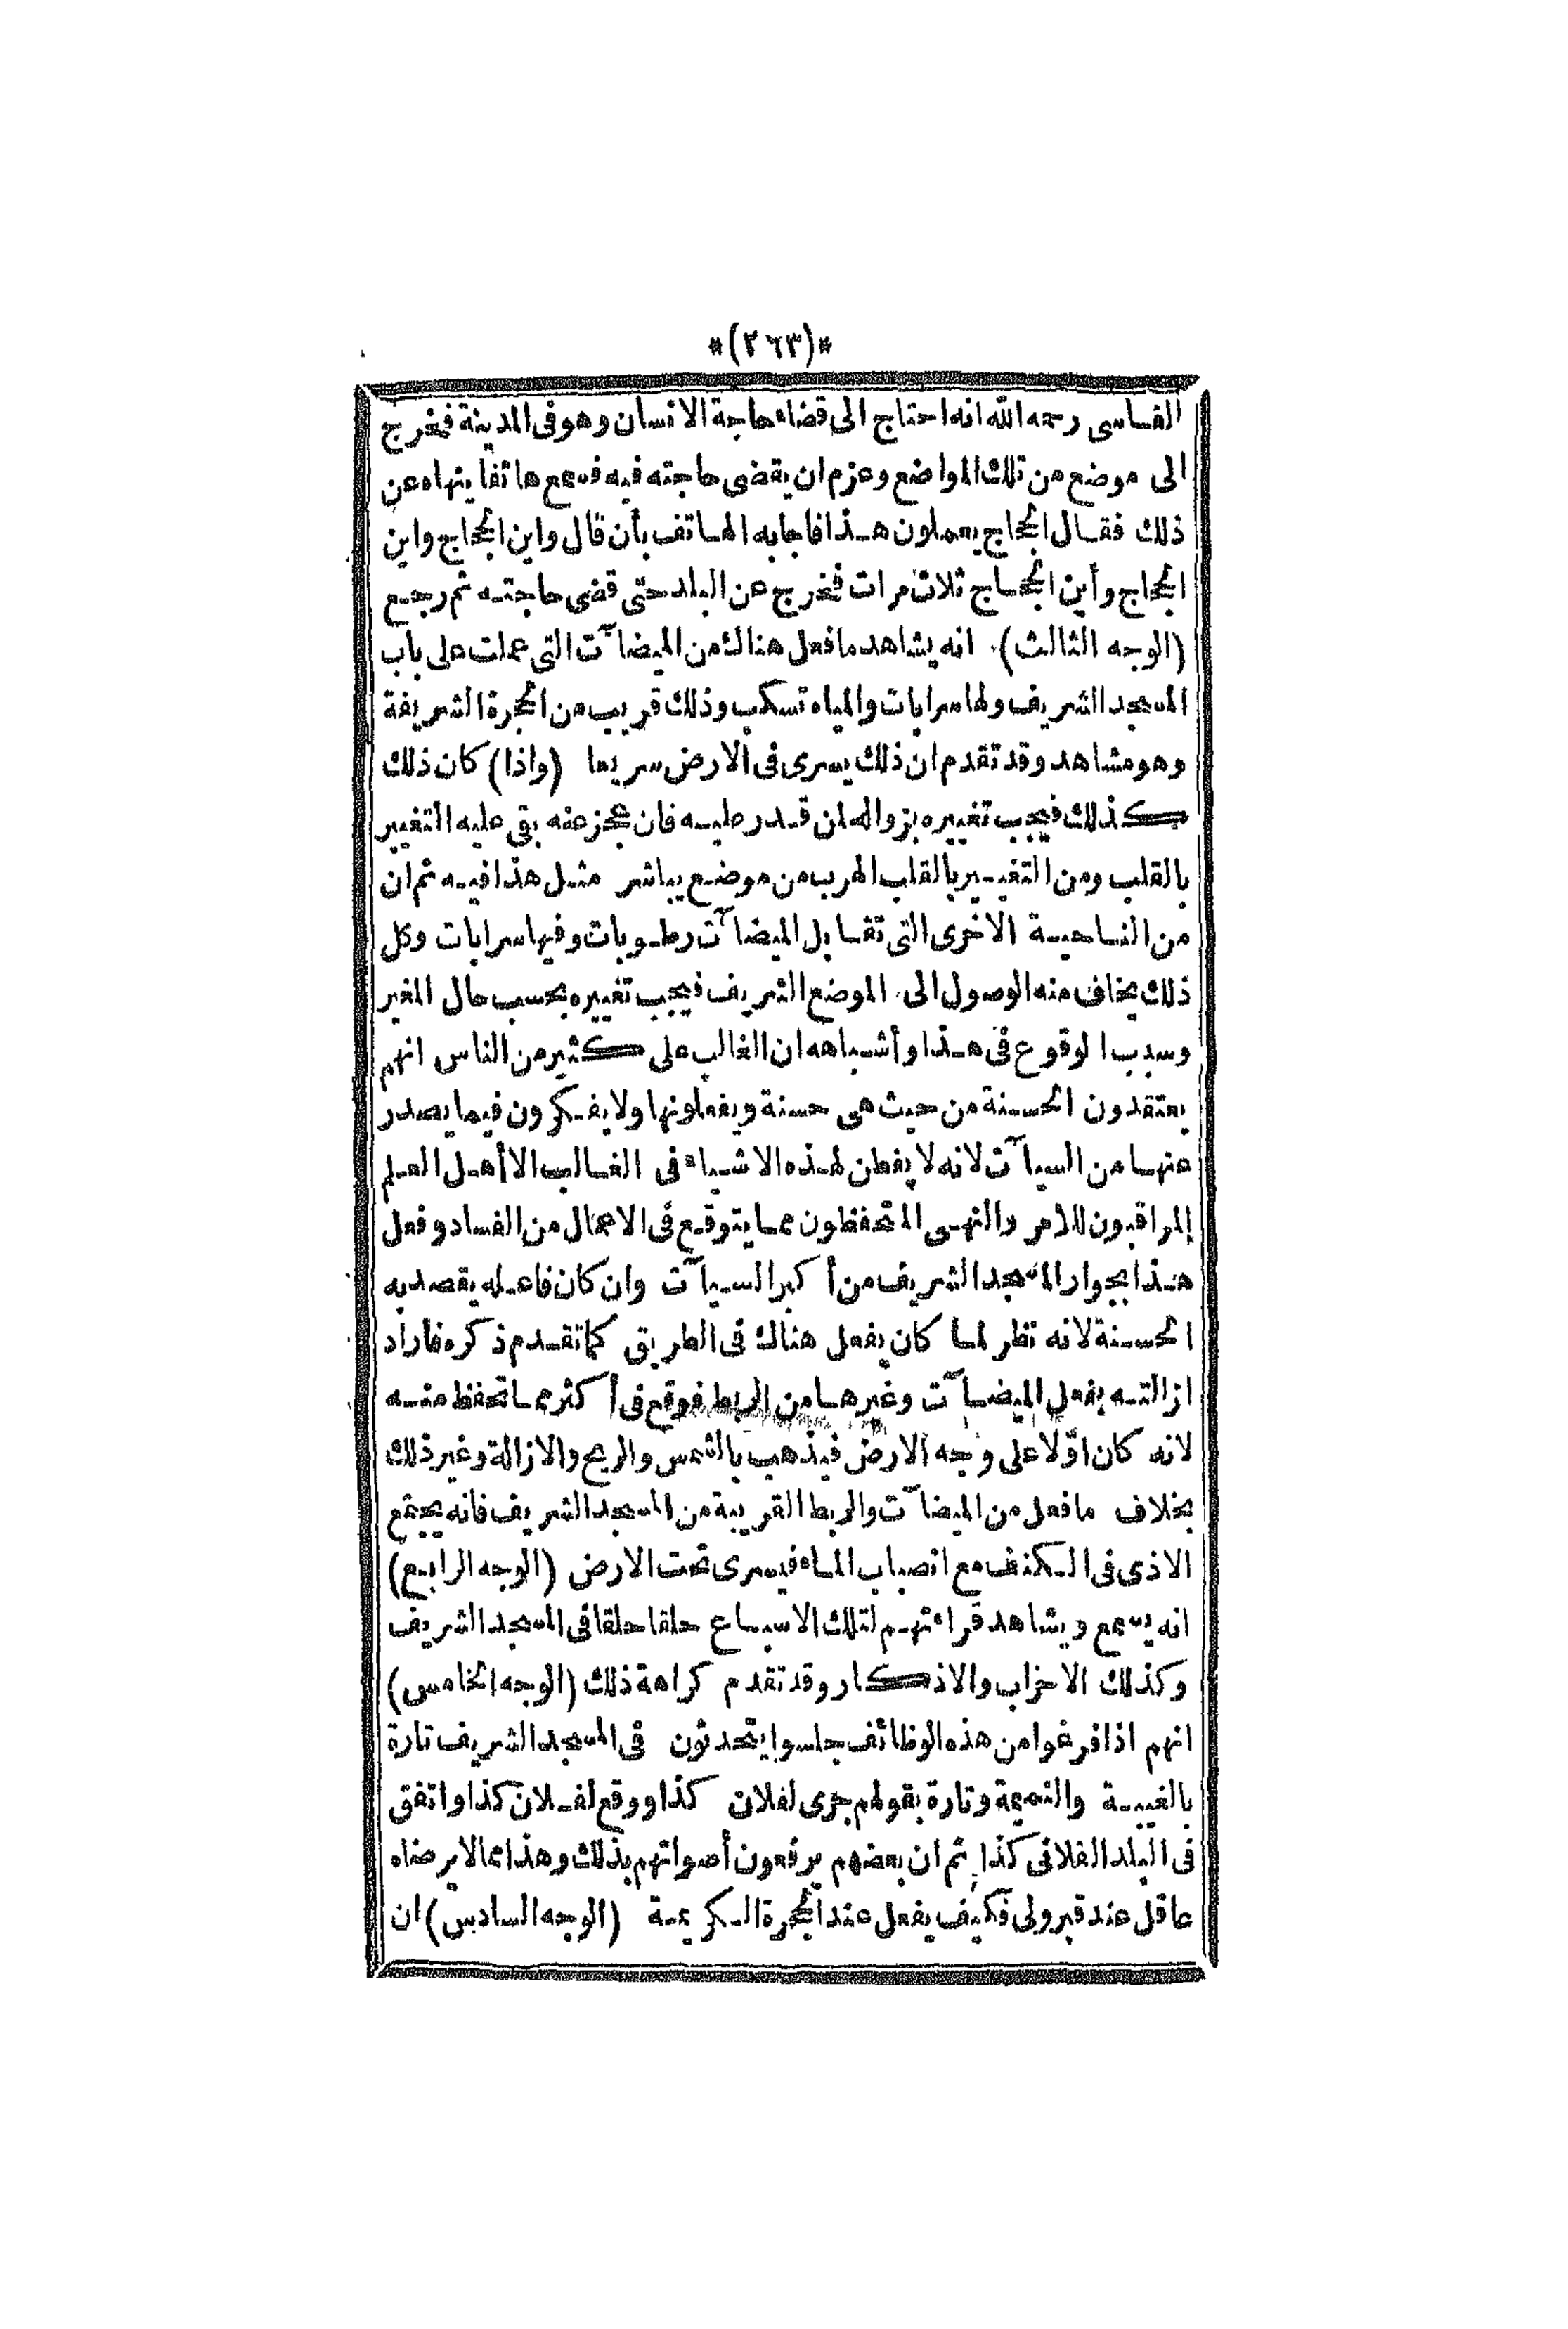 *(٢٦٣)*
الفاسى رحمه الله انه احتاج الى قضاء حاجة الانسان وهو فى المدينة فخرج
الى موضع من تلك المواضع وعزم ان يقضى حاجته فيه فسمع هاتفا ينهاه عن
ذلك فقال الحجاج يعملون هذا فاجابه الهاتف بأن قال واين الحجاج واين
الحجاج وأين الحجاج ثلاث مرات فخرج عن البلد حتى قضى حاجته ثم رجع
(الوجه الثالث) انه يشاهد ما فعل هناك من الميضآت التى عملت على باب
المسجد الشريف ولها سرابات والمياه تسكب وذلك قريب من الحجرة الشريفة
وهو مشاهد وقد تقدم ان ذلك يسرى فى الارض سريعا (واذا) كان ذلك
كذلك فيجب تغييره بزواله لمن قدر عليه فان عجز عنه بقى عليه التغيير
بالقلب ومن التغيير بالقلب الهرب من موضع يباشر مثل هذا فيه ثم ان
من الناحية الاخرى التى تقابل الميضآت رطوبات وفيها سرابات وكل
ذلك يخاف منه الوصول الى الموضع الشريف فيجب تغييره بحسب حال المغير
وسبب الوقوع فى هذا وأشباهه ان الغالب على كثير من الناس انهم
يعتقدون الحسنة من حيث هى حسنة ويفعلونها ولا يفكرون فيما يصدر
عنها من السيآت لانه لا يفطن لهذه الاشياء فى الغالب الا أهل العلم
المراقبون للامر والنهى المتحفظون مما يتوقع فى الاعمال من الفساد وفعل
هذا بجوار المسجد الشريف من أكبر السيآت وان كان فاعله يقصد به
الحسنة لانه نظر لما كان يفعل هناك فى الطريق كما تقدم ذكره فأراد
ازالته بفعل الميضآت وغيرها من الربط فوقع فى أكثر مما تحفظ منه
لانه كان اوّلا على وجه الارض فيذهب بالشمس والريح والازالة وغير ذلك
بخلاف ما فعل من الميضآت والربط القريبة من المسجد الشريف فانه يجتمع
الاذى فى الكنف مع انصباب الماء فيسرى تحت الارض (الوجه الرابع)
انه يسمع ويشاهد قراءتهم لتلك الاسباع حلقا حلقا فى المسجد الشريف
وكذلك الاحزاب والاذكار وقد تقدم كراهة ذلك (الوجه الخامس)
انهم اذا فرغوا من هذه الوظائف جلسوا يتحدثون فى المسجد الشريف تارة
بالغيبة والنميمة وتارة بقولهم جرى لفلان كذا ووقع لفلان كذا واتفق
فى البلد الفلانى كذا ثم ان بعضهم يرفعون أصواتهم بذلك وهذا مما لا يرضاه
عاقل عند قبر ولى فكيف يفعل عند الحجرة الكريمة (الوجه السادس) ان